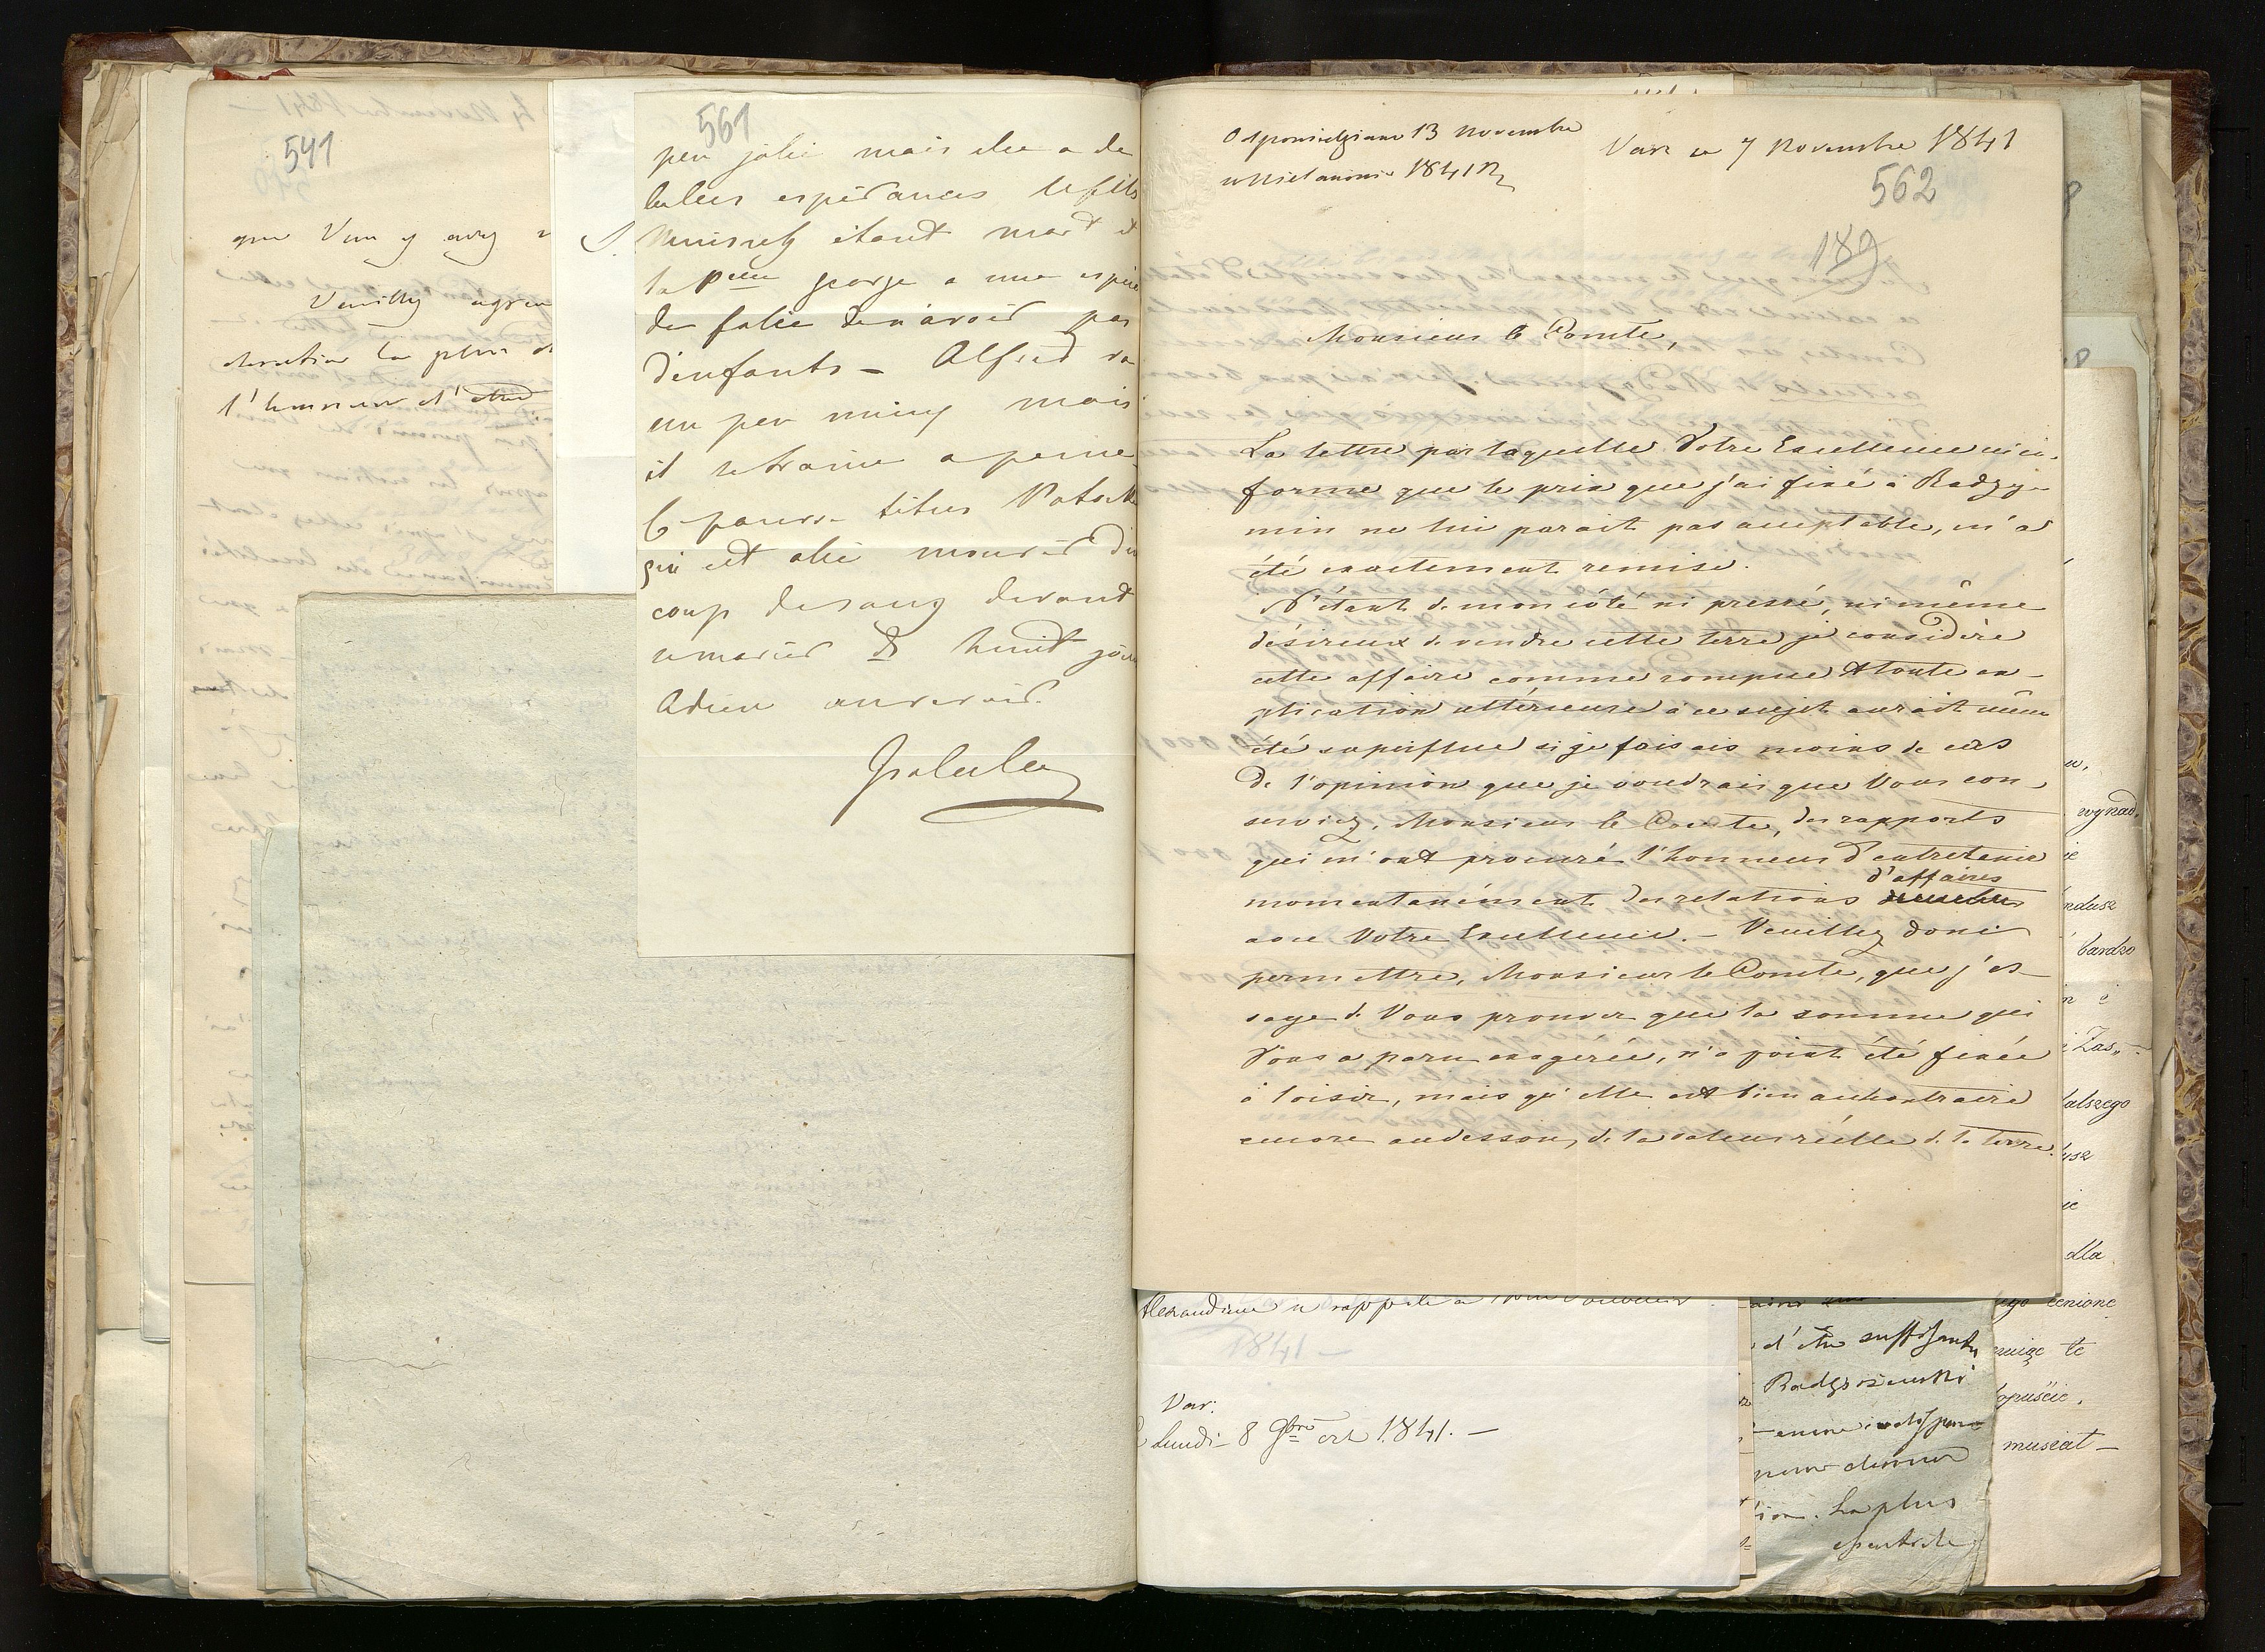 541
que Vous y avez
Veuillez agréer
la plus
l'honneur d'être
561
peu jolie mais elle a de
belles espérances le fils
étant mort et
la Pcesse George a une espèce
de folie de n'avoir pas
d'enfants – Alfred va
un peu mieux mais
il se traine a peine
le pauvre titus
qui est allé mourir d'un
coup de sang devant
se marier ds huit jours
Adieu au revoir.
Odpowiedziane 13 Novembre
w Wielanowie 1841 R
Vars ce 7 Novembre 1841
562
189
Monsieur le Comte,
La lettre par laquelle Votre Excellence m'in-
forme que le prix que j'ai fixé à Radzy-
min ne lui parait pas acceptable, m'a
été exactement remise.
N'étant de mon côté ni pressé, ni même
désireux de vendre cette terre je considère
cette affaire comme rompue & toute ex-
plication ultérieure à ce sujet aurait même
été superflue si je faisais moins de cas
de l'opinion que je voudrais que Vous con-
serviez, Monsieur le Comte, des rapports
qui m'ont procuré l'honneur d'entretenir
d'affaires
momentanément des relations
avec Votre Excellence. – Veuillez donc
permettre, Monsieur le Comte, que j'es-
saye de Vous prouver que la somme qui
Vous a paru exagérée, n'a point été fixée
à loisir, mais qu'elle est bien au contraire
encore audessous de la valeur réelle de la terre.
Alexandrine se rappelle a
1841 –
Var:
Lundi 8 9bre 1841. –
d'être suffisante
Radziszewski
pour donner
La plus
wynad.
bardzo
i Zas„
alszego
dla
cenione
te
opuście.
musiat –